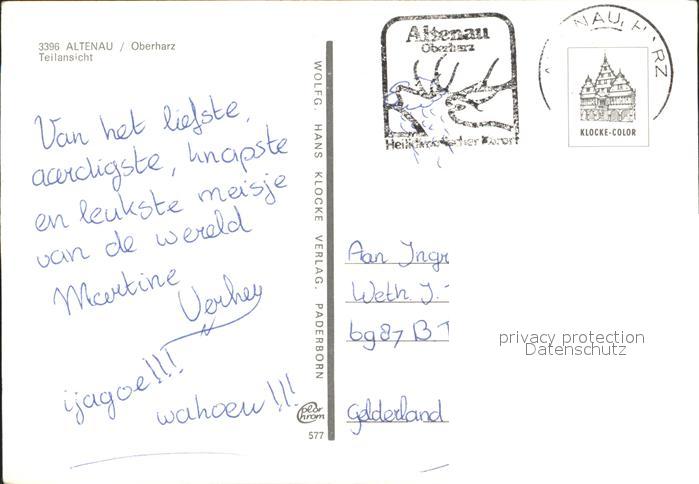 3396 ALTENAU / Oberharz
Teilansicht
Van het liefste,
aardigste, knapste
en leukste meisje
van de wereld
Martine
Verhey
ijagoe!!!
wahoeu!!!
WOLFG. HANS KLOCKE VERLAG, PADERBORN
color
chrom
577
Altenau
Oberharz
Heilklimatischer Kurort
ALTENAU, HARZ
KLOCKE-COLOR
Aan Ingr
Weth. J.
6987 B.
Gelderland
privacy protection
Datenschutz